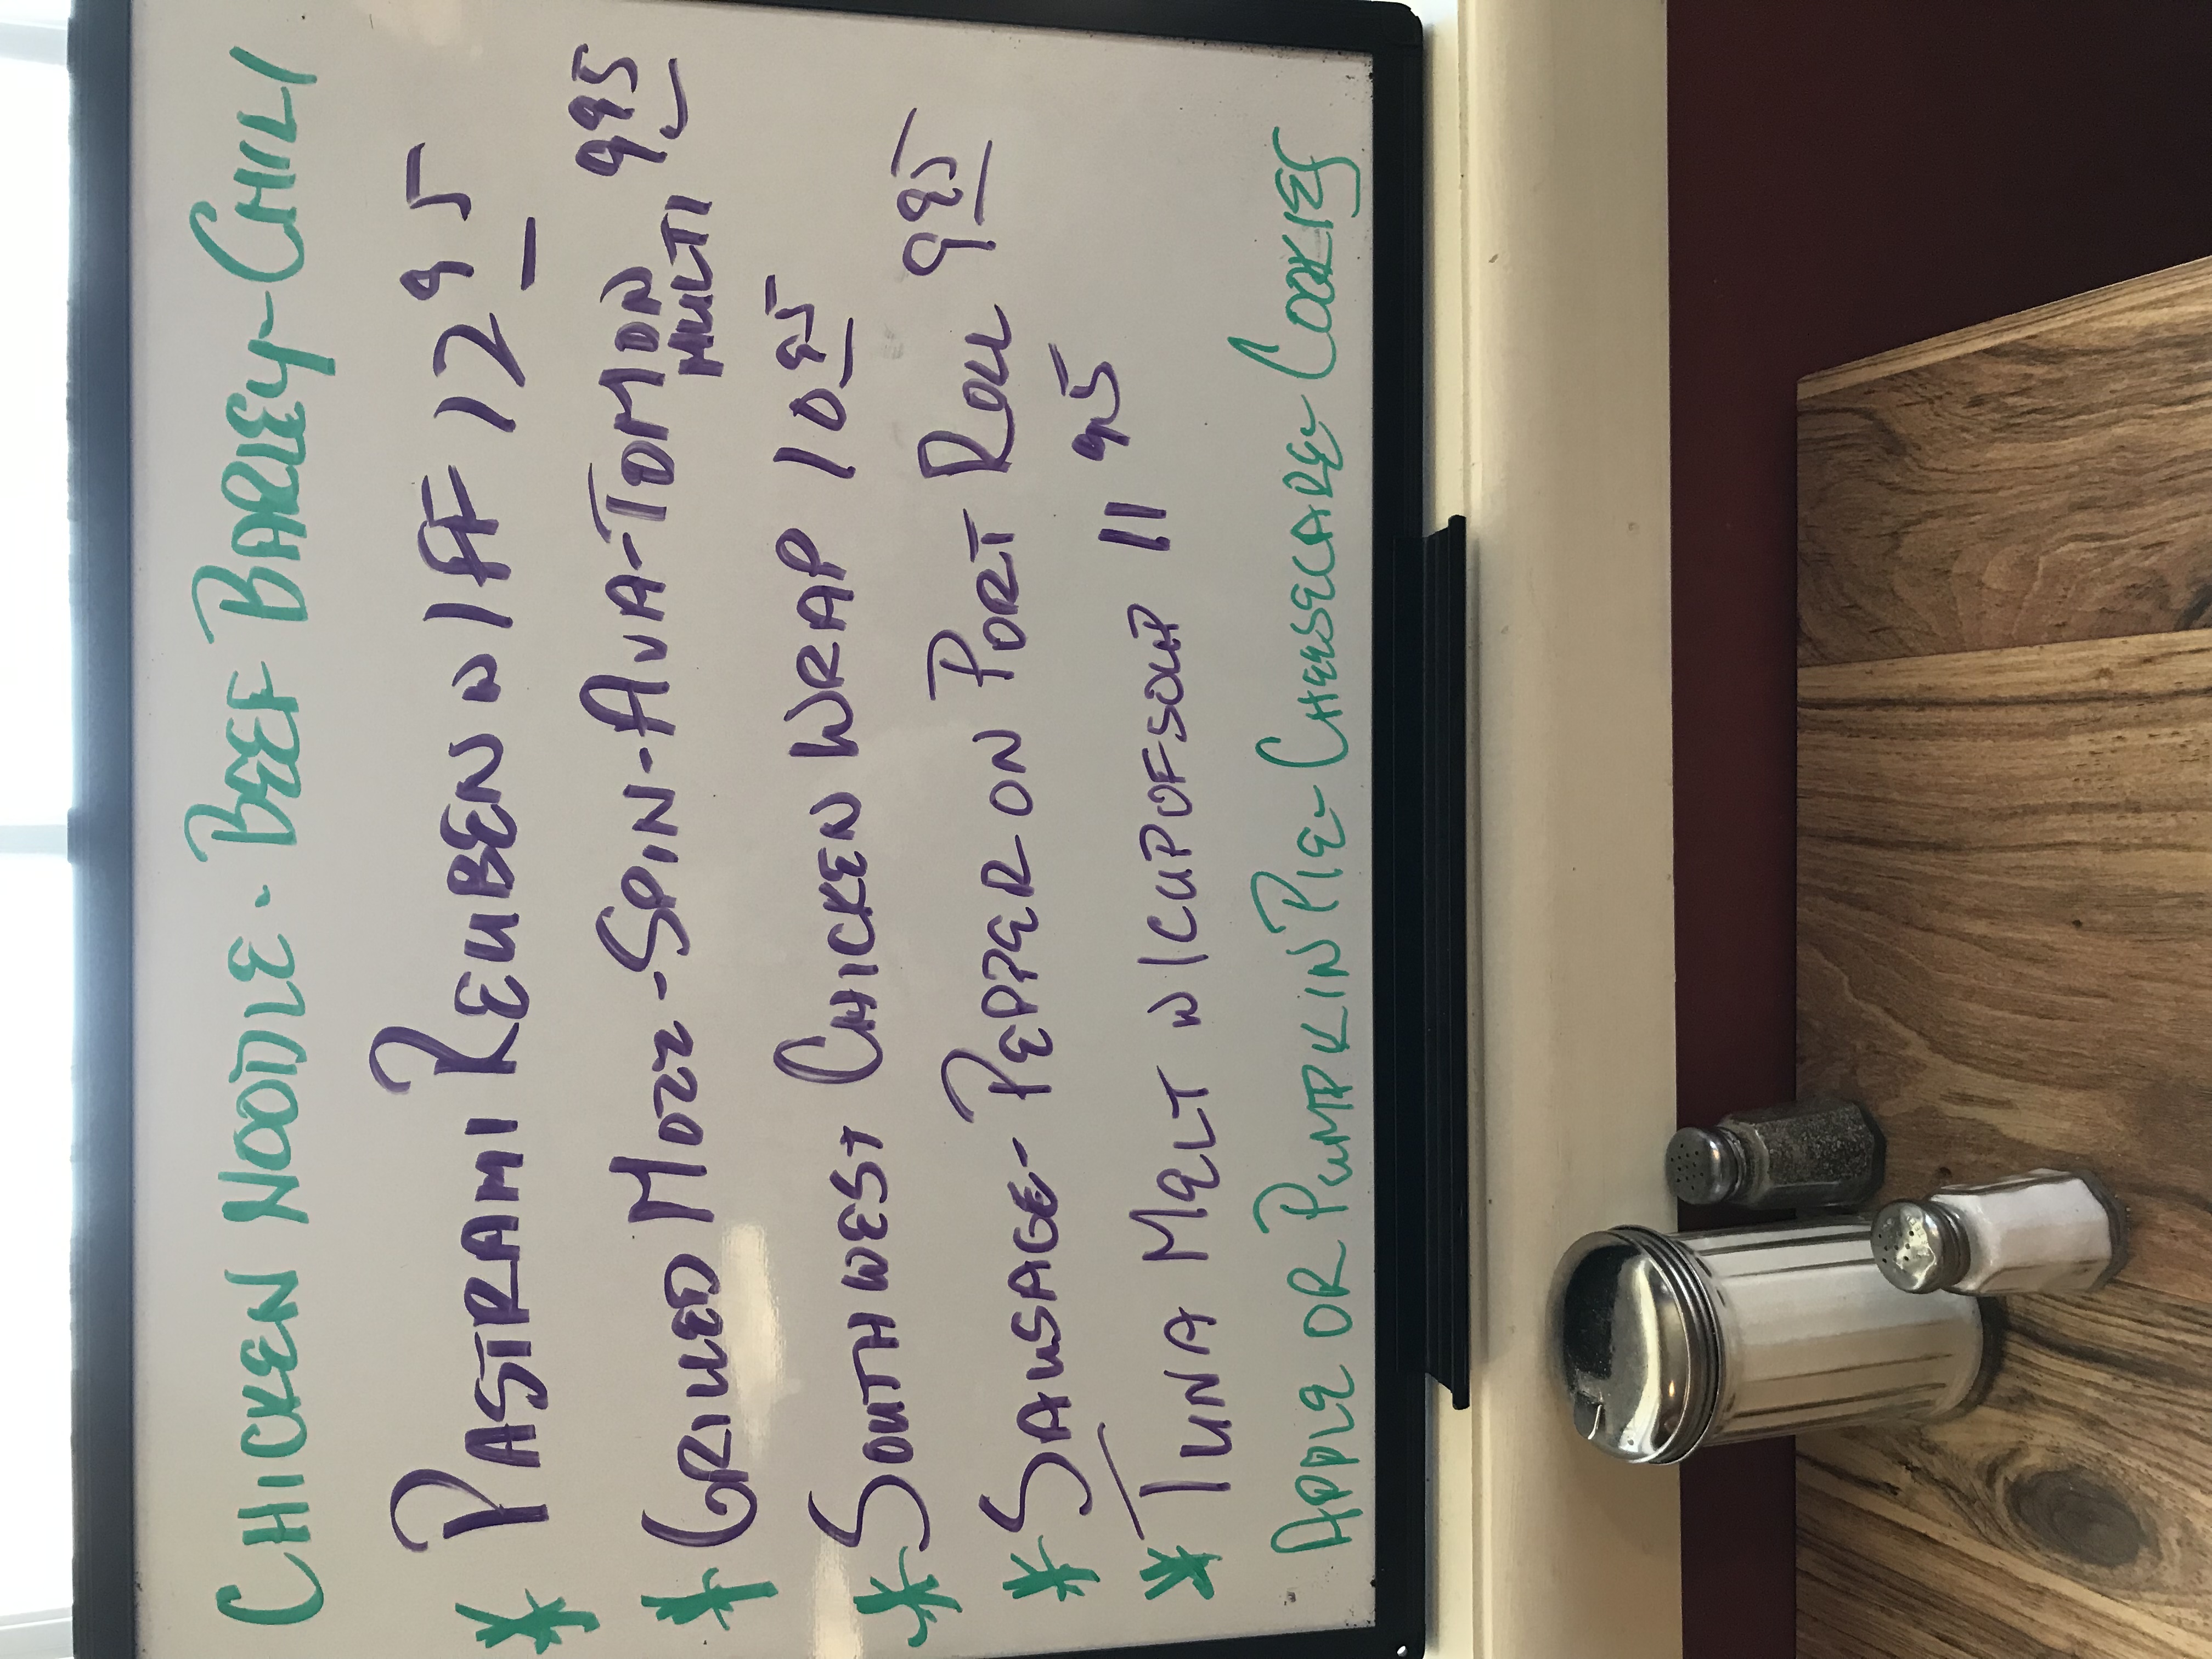 CHICKEN NOODLE · BEEF BARLEY - CHILI
* PASTRAMI REUBEN W/FF 12 95
* GRILLED MOZZ - SPIN - AVA - TOM ON MULTI 9 95
* SOUTHWEST CHICKEN WRAP 10 95
* SAUSAGE - PEPPER ON PORT ROLL 9 95
* TUNA MELT W/CUP OF SOUP 11 95
APPLE OR PUMPKIN PIE - CHEESECAKE - COOKIES